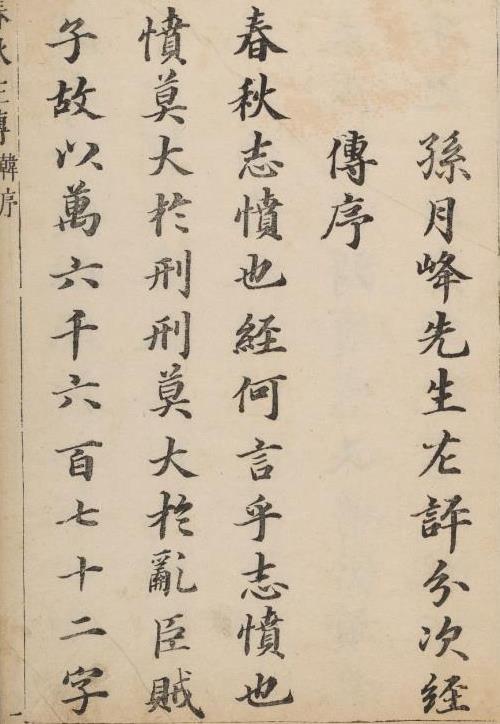 孫月峰先生左評分次經
傳序
春秋志憤也經何言乎志憤也
憤莫大於刑刑莫大於亂臣賊
子故以萬六千六百七十二字
春秋左傳 韓序
一